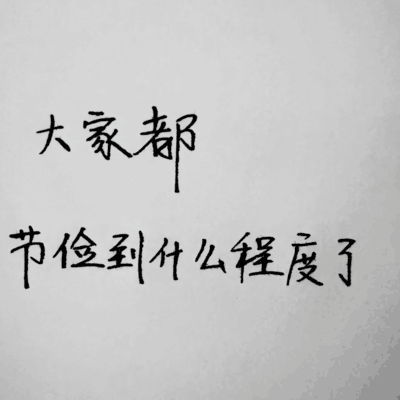 大家都
节俭到什么程度了